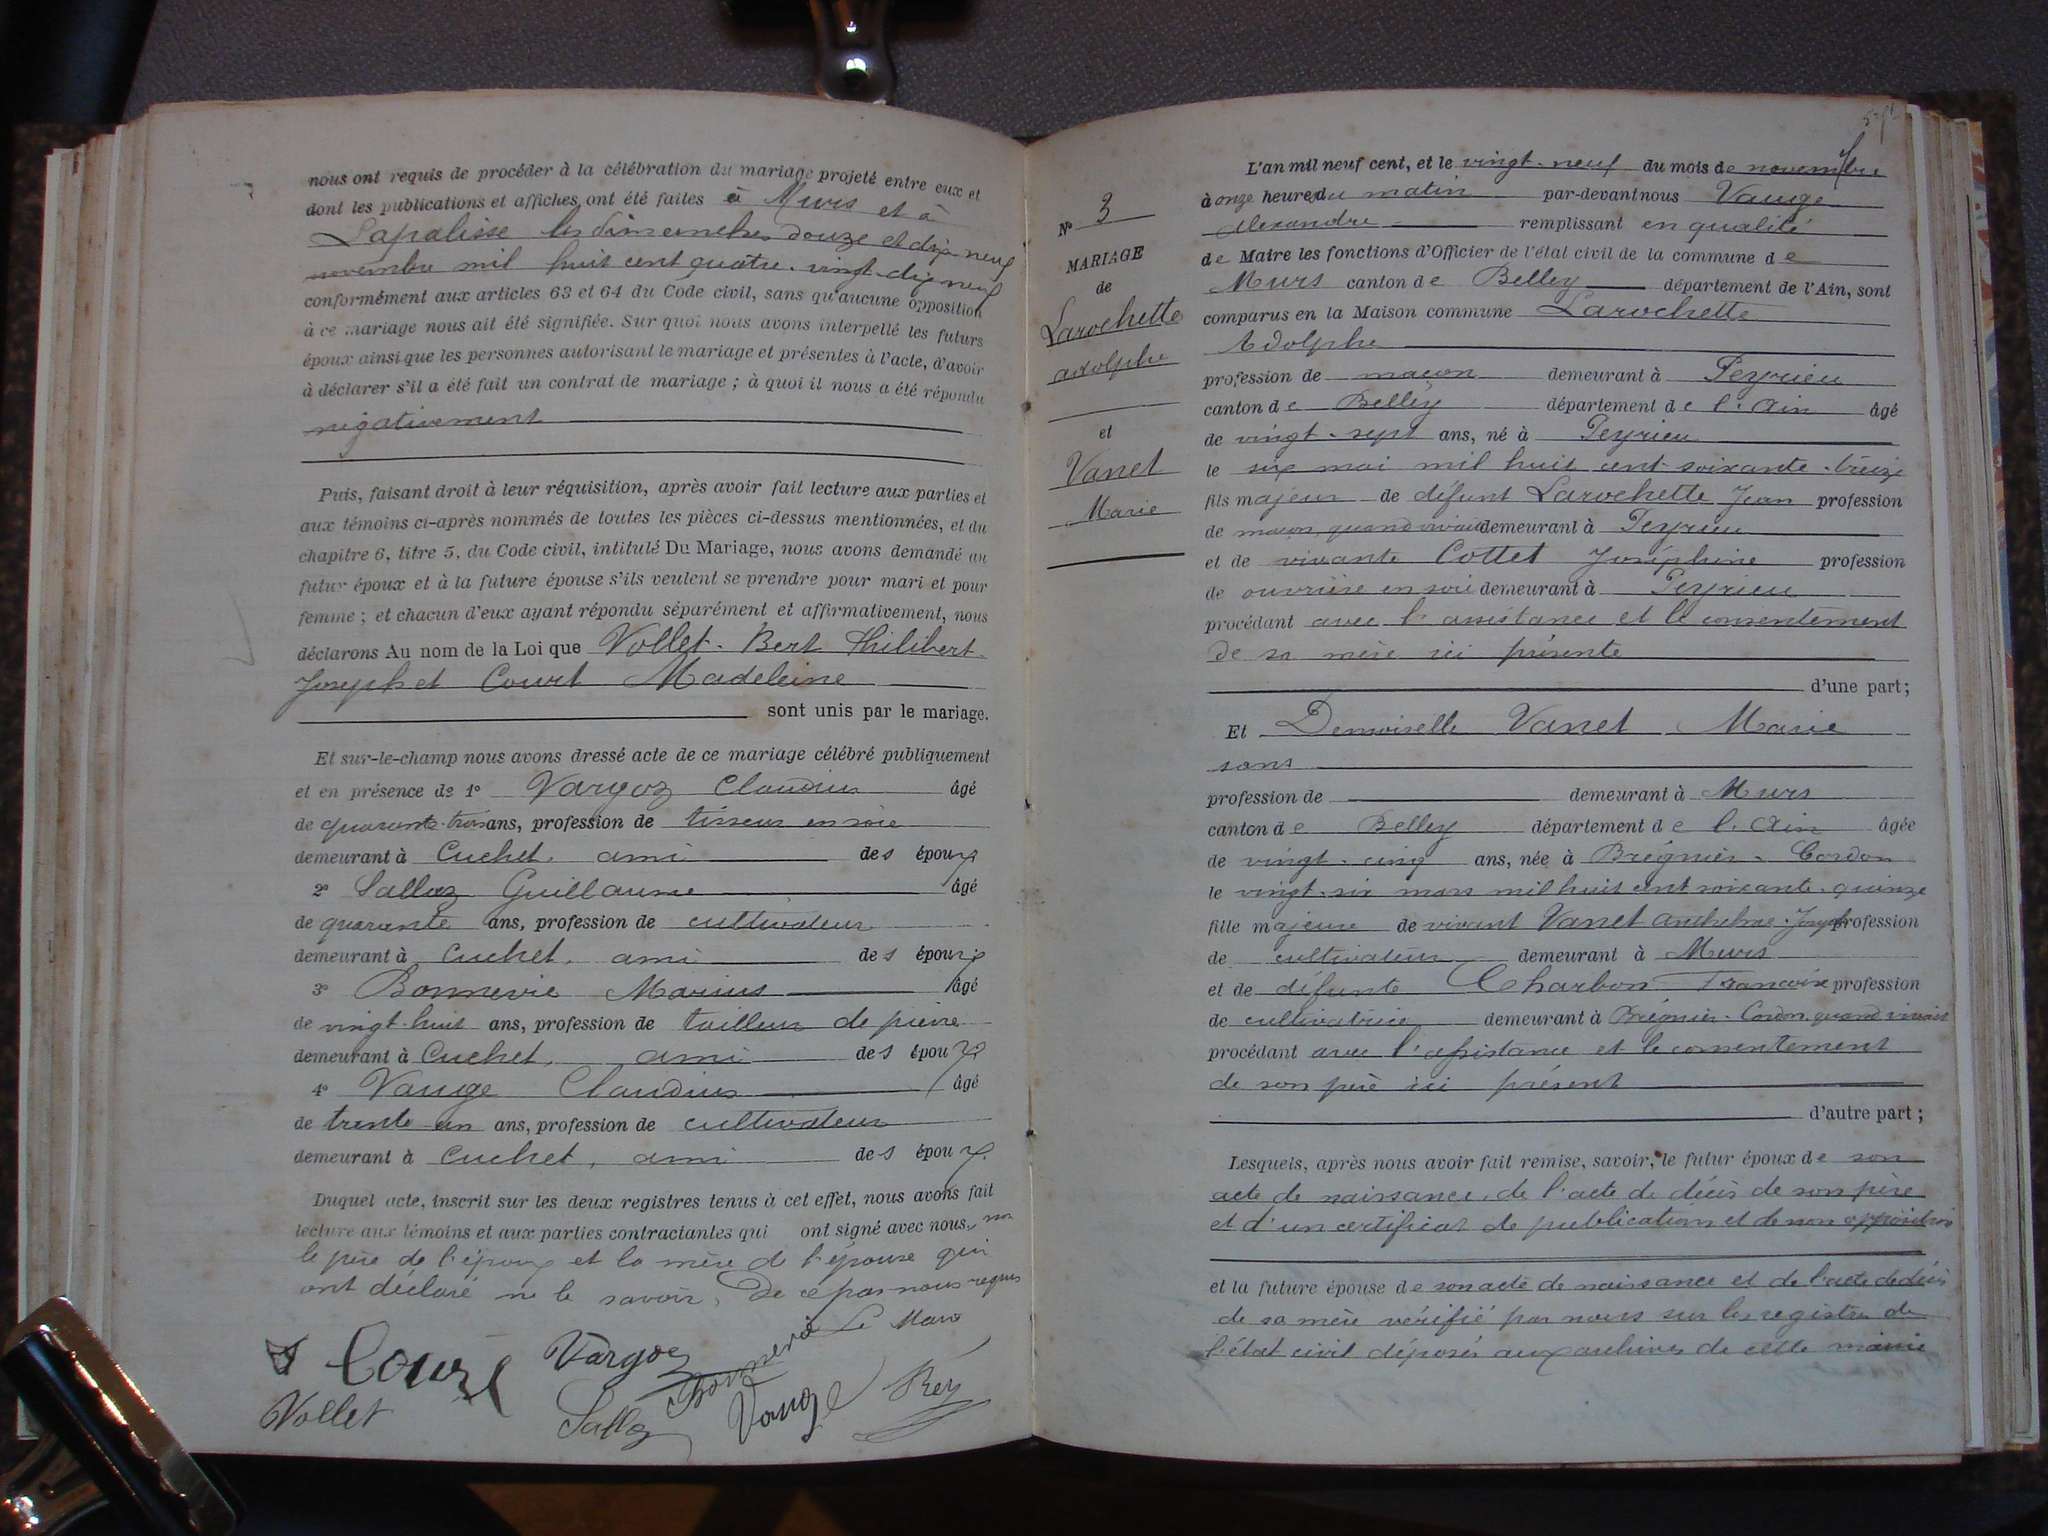 nous ont requis de procéder à la célébration du mariage projeté entre eux et
dont les publications et affiches ont été faites à Murs et à
Lapalisse les dimanches douze et dix neuf
novembre mil huit cent quatre-vingt-dix neuf
conformément aux articles 63 et 64 du Code civil, sans qu'aucune opposition
à ce mariage nous ait été signifiée. Sur quoi nous avons interpellé les futurs
époux ainsi que les personnes autorisant le mariage et présentes à l'acte, d'avoir
à déclarer s'il a été fait un contrat de mariage ; à quoi il nous a été répondu
négativement
Puis, faisant droit à leur réquisition, après avoir fait lecture aux parties et
aux témoins ci-après nommés de toutes les pièces ci-dessus mentionnées, et du
chapitre 6, titre 5, du Code civil, intitulé Du Mariage, nous avons demandé au
futur époux et à la future épouse s'ils veulent se prendre pour mari et pour
femme ; et chacun d'eux ayant répondu séparément et affirmativement, nous
déclarons Au nom de la Loi que Vollet-Bert Philibert
Joseph et Court Madeleine
sont unis par le mariage.
Et sur-le-champ nous avons dressé acte de ce mariage célébré publiquement
et en présence de 1° Vargoz Claudius âgé
de quarante-trois ans, profession de tisseur en soie
demeurant à Cuchet, ami des époux
2° Salloz Guillaume âgé
de quarante ans, profession de cultivateur
demeurant à Cuchet, ami des époux
3° Bonnevie Marius âgé
de vingt-huit ans, profession de tailleur de pierre
demeurant à Cuchet, ami des époux
4° Vauge Claudius âgé
de trente-un ans, profession de cultivateur
demeurant à Cuchet, ami des époux.
Duquel acte, inscrit sur les deux registres tenus à cet effet, nous avons fait
lecture aux témoins et aux parties contractantes qui ont signé avec nous, non
le père de l'époux et la mère de l'épouse qui
ont déclaré ne le savoir, de ce par nous requis
Le Maire
Court Vargoz Bonnevie
Vollet Salloz Vauge Rey
N° 3
MARIAGE
de
Larochette
Adolphe
et
Vanet
Marie
L'an mil neuf cent, et le vingt-neuf du mois de novembre
à onze heures du matin par-devant nous Vauge
Alexandre remplissant en qualité
de Maire les fonctions d'Officier de l'état civil de la commune de
Murs canton de Belley département de l'Ain, sont
comparus en la Maison commune Larochette
Adolphe
profession de maçon demeurant à Peyrieu
canton de Belley département de l'Ain âgé
de vingt-sept ans, né à Peyrieu
le six mai mil huit cent soixante-treize
fils majeur de défunt Larochette Jean profession
de maçon quand vivait demeurant à Peyrieu
et de vivante Cottet Joséphine profession
de ouvrière en soie demeurant à Peyrieu
procédant avec l'assistance et le consentement
de sa mère ici présente
d'une part;
Et Demoiselle Vanet Marie
sans
profession de demeurant à Murs
canton de Belley département de l'Ain âgée
de vingt-cinq ans, née à Brégnier-Cordon
le vingt-six mars mil huit cent soixante-quinze
fille majeure de vivant Vanet Anthelme-Joseph profession
de cultivateur demeurant à Murs
et de défunte Charbon Françoise profession
de cultivatrice demeurant à Brégnier-Cordon quand vivait
procédant avec l'assistance et le consentement
de son père ici présent
d'autre part;
Lesquels, après nous avoir fait remise, savoir, le futur époux de son
acte de naissance, de l'acte de décès de son père
et d'un certificat de publication et de non opposition
et la future épouse de son acte de naissance et de l'acte de décès
de sa mère vérifié par nous sur les registres de
l'état civil déposés aux archives de cette mairie